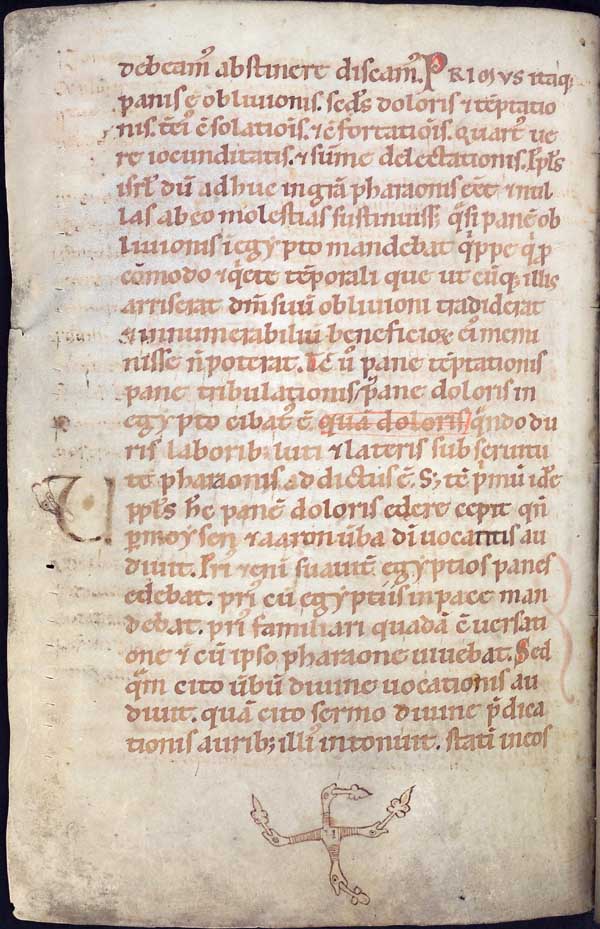 debeam᷒ abstinere discam᷒. PRIMVS itaq;
panis ē obliuionis. sc̄ds doloris ⁊ tēptatio
nis. t̄ci ɔ̄solatiōis. ⁊ ɔ̄fortatiōis. quart᷒ ue
re iocunditatis. ⁊ sūme delectationis. Ppl̄s
isrl̄ dū adhuc in gr̄a pharaonis eēt ⁊ nul
las ab eo molestias sustinuiss; q̄si panē ob
liuionis ī egypto mandebat q̄ppe q̄ p̱
cōmodo ⁊ q̄ete tēporali que utcūq; illis
arriserat dm̄ suū obliuioni tradiderat
⁊ innumerabiliū beneficioꝝ ei᷒ memi
nisse n̄ poterat. Ie ū pane tēptationis
pane tribulationis, pane doloris in
egypto cibat᷒ ē. quā doloris q̄ndo du
ris laborib; luti ⁊ lateris sub seruitu
te pharaonis addictus ē. S; tē p̄mū idē
pp̱ls hc̄ panē doloris edere cepit qn̄
p̱ moysen ⁊ aaron ūba dī uocantis au
diuit. Pri᷒ enī suauit̄ egyptios panes
edebat. pri᷒ cū egyptiis in pace man
debat. pri᷒ familiari quadā ɔ̄uersati
one ⁊ cū ipso pharaone uiuebat. Sed
q̄m cito ūbū diuine uocationis au
diuit. quā cito sermo diuine p̄dica
tionis aurib; illi᷒ intonuit. statī in eos